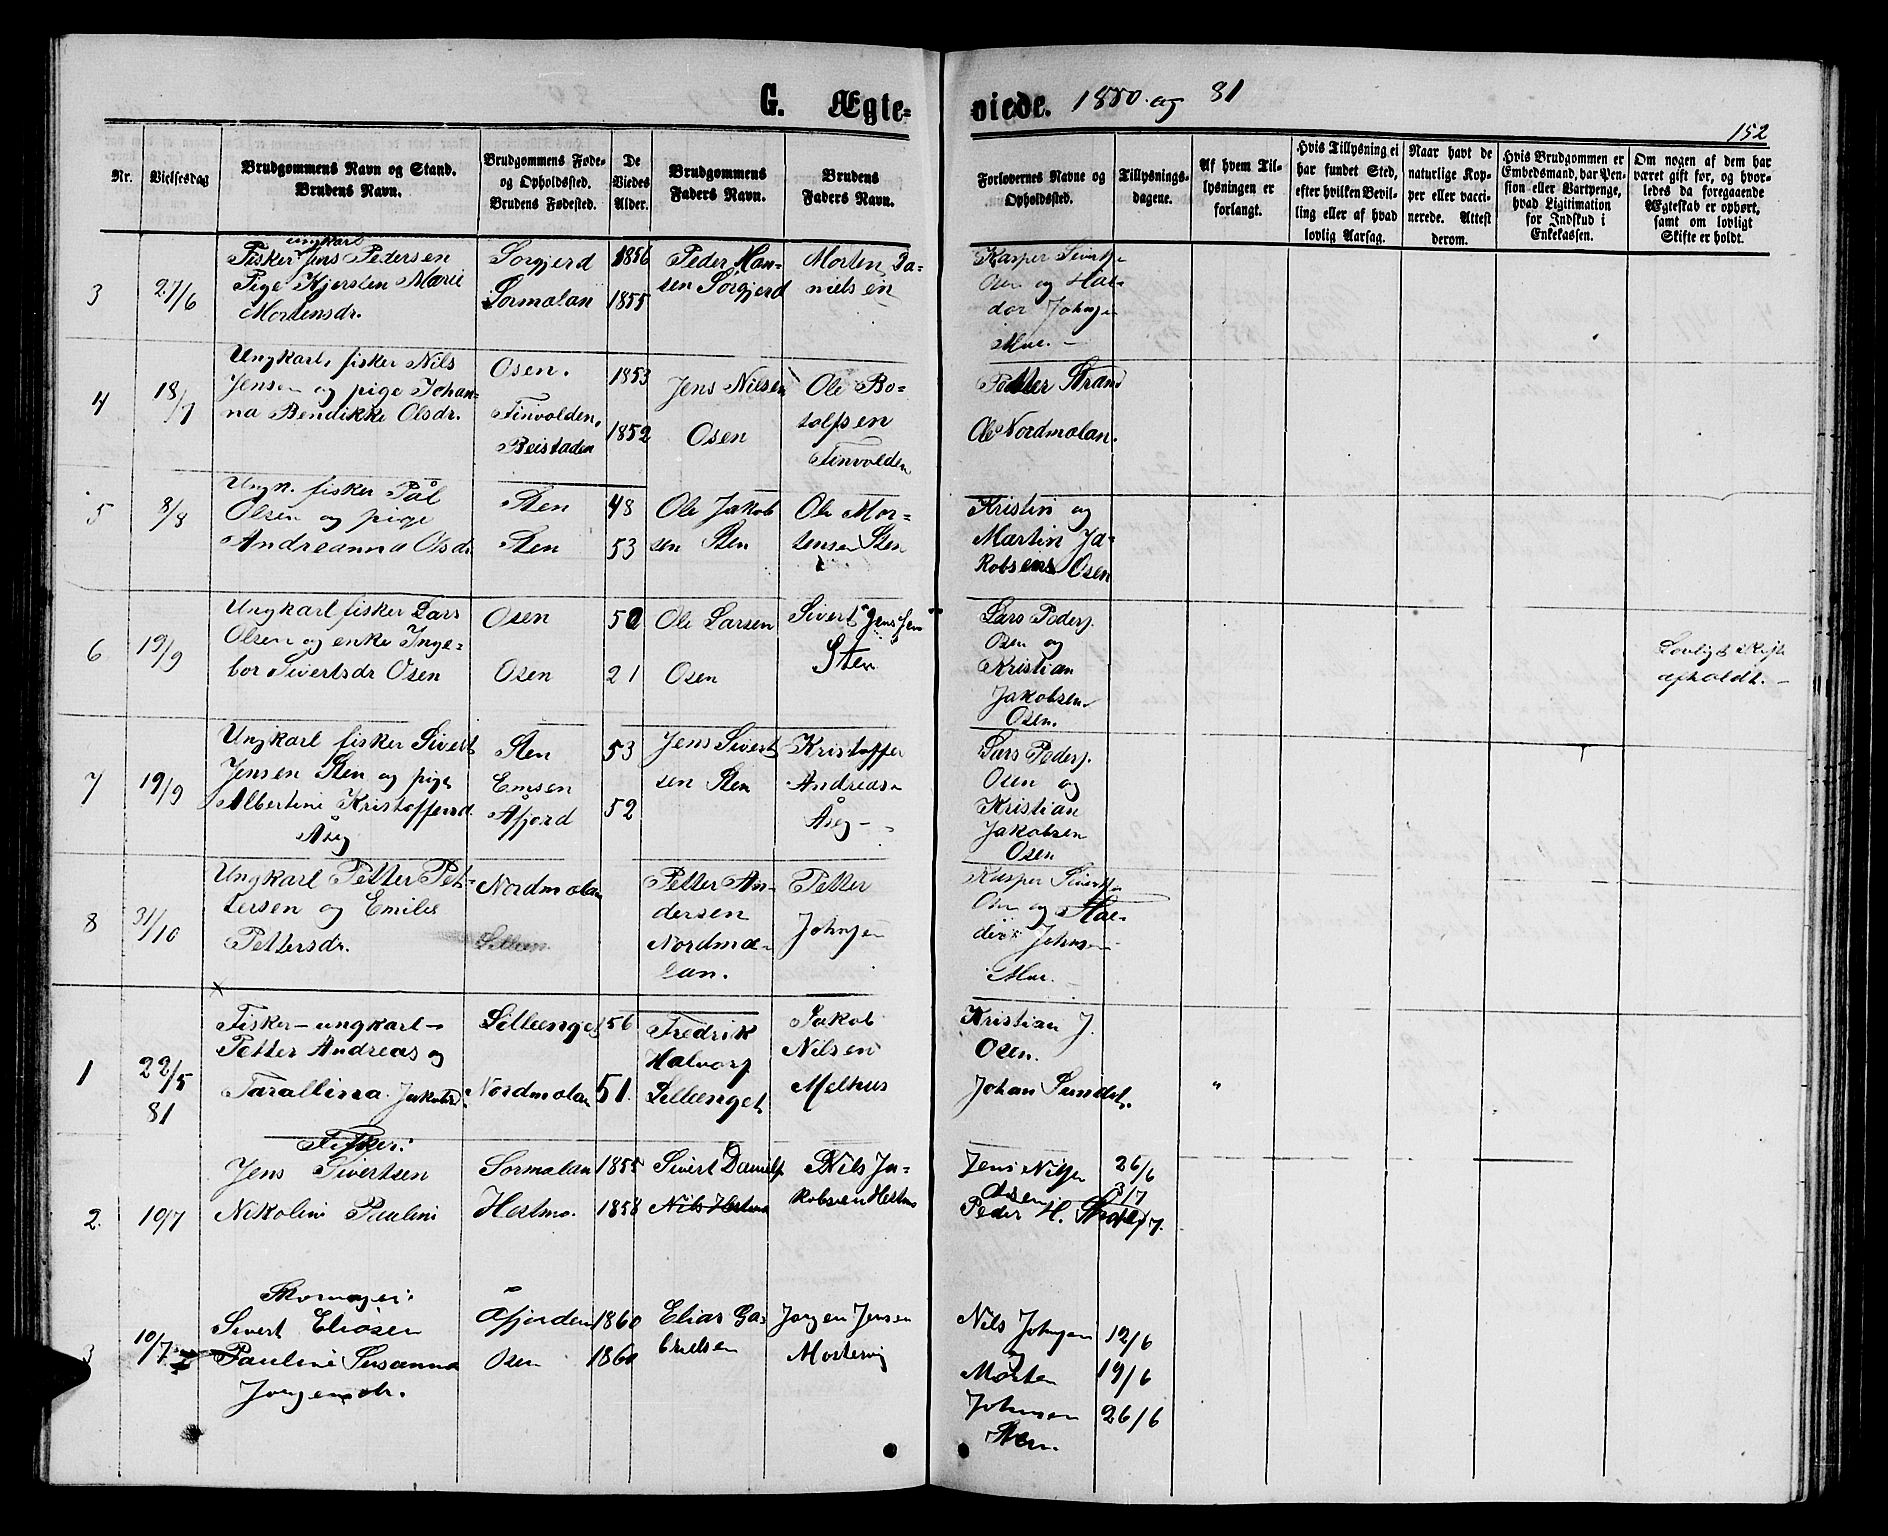 G. Ægte-
viede. 1880 og 81
152
Nr.
Vielsesdag
Brudgommens Navn og Stand.
Brudens Navn.
Brudgommens Føde-
og Opholdssted.
Brudens Fødested.
De
Viedes
Alder.
Brudgommens
Faders Navn.
Brudens
Faders Navn.
Forlovernes Navne og
Opholdssted.
Tillysnings-
dagene.
Af hvem Til-
lysningen er
forlangt.
Hvis Tillysning ei
har fundet Sted,
efter hvilken Bevil-
ling eller af hvad
lovlig Aarsag.
Naar havt de
naturlige Kop-
per eller vacci-
nerede. Attest
derom.
Hvis Brudgommen er
Embedsmand, har Pen-
sion eller Vartpenge,
hvad Ligitimation
for Indskud i
Enkekassen.
Om nogen af dem har
været gift før, og hvor-
ledes da foregaaende
Ægteskab er ophørt,
samt om lovligt
Skifte er holdt.
3
27/6
ungkarl
Fisker Jens Pedersen
Pige Kjersten Marie
Mortensdr.
Sorgjerd
Sormalan
1856
1855
Peder Han-
sen Sorgjerd
Morten Da-
nielsen
Kasper Sivertsn
Osen og Hal-
dor Johnsen
4
18/7
Ungkarl, fisker Nils
Jensen og pige Johan-
na Bendikke Olsdr.
Osen.
Finvolden,
Beistaden
1853
1852
Jens Nilsen
Osen
Ole Bo-
tolfsen
Finvolden
Petter Strand
Ole Nordmalan.
5
8/8
Ungk. fisker Pål
Olsen og pige
Andreanna Olsdr.
Sten
Sten
48
53
Ole Jakob
sen Sten
Ole Mor-
tensen Sten
Kristin og
Martin Ja-
kobsens Osen
6
19/9
Ungkarl fisker Lars
Olsen og enke Inge-
bor Sivertsdr Osen
Osen
Osen
50
21
Ole Larsen
Osen
Sivert Jensen
Sten
Lars Peders.
Osen og
Kristian
Jakobsen
Osen.
Lovligt skifte
apholdt.
7
19/9
Ungkarl fisker Sivert
Jensen Sten og pige
Albertine Kristoffersd.
Åseg
Sten
Emsen
Åfjord
53
52
Jens Sivert
sen Sten
Kristoffer
Andreasn
Åseg
Lars Peders.
Osen og
Kristian
Jakobsen
Osen
8
31/10
Ungkarl Petter Pet-
tersen og Emilie
Pettersdr.
Nordmalan
Petter An-
dersen
Nordma-
lan.
Petter
Johnsen
Kasper Sivertsn
Osen og Hal-
dor Johnsen
1
22/5
81
Fisker-ungkarl-
Petter Andreas og
Tarallina Jakobsd.
Lilleenget
Nordmalan
56
51.
Fredrik
Halvors
Lilleenget
Jakob
Nilsen
Melhus
Kristian J.
Osen.
Johan Sundet.
"
2.
10/7
Fisker:
Jens Sivertsen
Nikoline Pauline
Sormalan
Hestmo.
1855
1858
Sivert Daniels
Nils Hestmo
Nils Ja-
kobsen Hestmo
Jens Nilsen
Osen
Peder H.
26/6
3/7
3
10/7
Skomager:
Sivert Eliasen
Pauline Susanna
Jørgensdr.
Åfjorden
Osen
1860
1860
Elias Ga-
brielsen
Jørgen Jensen
Mostervig
Nils Johnsen
Morten
Johnsen
Sten.
12/6
19/6
26/6